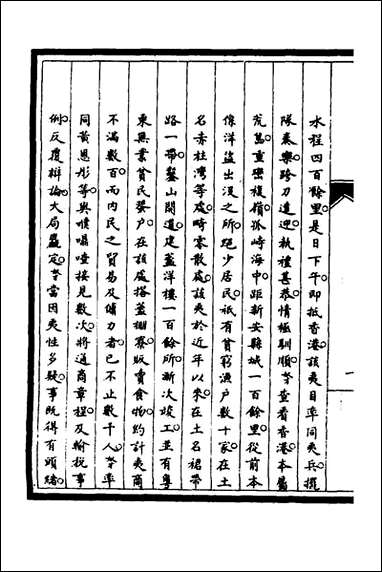 水程四百餘里是日下午即抵香港該夷目率同夷兵擺
隊奏樂跨刀道迎執禮甚恭情極馴順奴才查看香港本屬
荒島重巒複嶺孤峙海中距新安縣城一百餘里從前本
係洋盜出沒之所絕少居民祇有貧窮漁戶數十家在土
名赤柱灣等處畸零散處該夷於近年以來在土名裙帶
路一帶鑿山開道建蓋洋樓一百餘所漸次竣工並有粵
東無業貧民蜑戶在該處搭蓋棚寮販賣食物約計夷商
不滿數百而內民之貿易及傭力者已不止數千人奴才率
同黃恩彤等與㗎嚩喳接見數次將通商章程及輸稅事
例反覆辯論大局粗定奴才當因夷性多疑事既得有頭緒